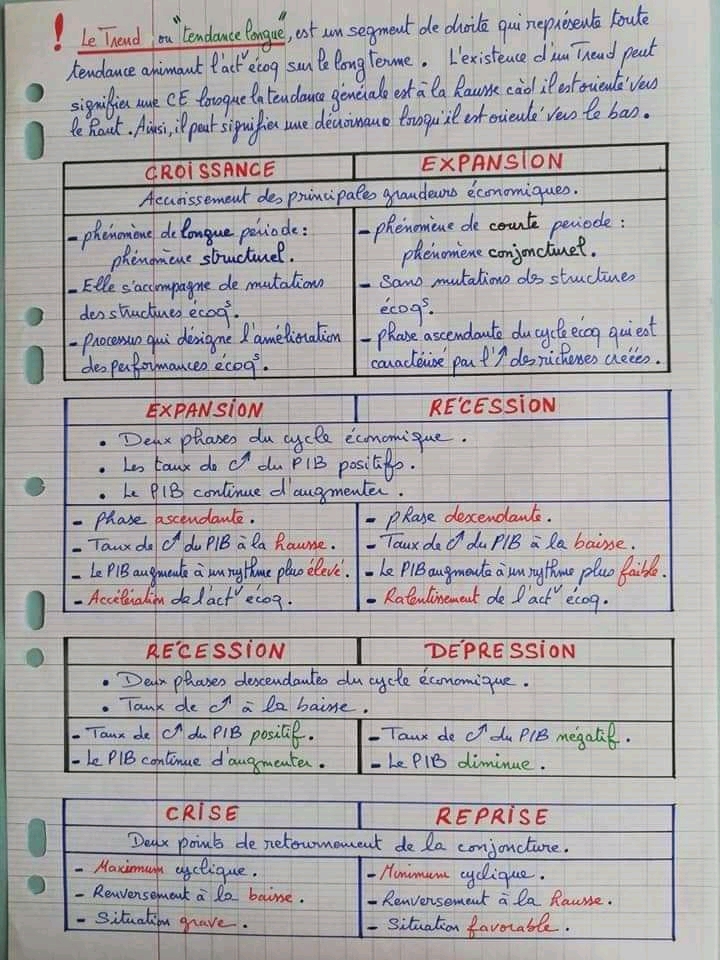 ! Le Trend, ou "tendance longue", est un segment de droite qui représente toute
tendance animant l'actᵛ écoq sur le long terme. L'existence d'un Trend peut
signifier une CE lorsque la tendance générale est à la hausse càd il est orienté vers
le haut. Ainsi, il peut signifier une décroissance lorsqu'il est orienté vers le bas.
CROISSANCE
EXPANSION
Accroissement des principales grandeurs économiques.
- phénomène de longue période :
phénomène structurel.
- Elle s'accompagne de mutations
des structures écoqˢ.
- processus qui désigne l'amélioration
des performances écoqˢ.
- phénomène de courte periode :
phénomène conjoncturel.
- Sans mutations des structures
écoqˢ.
- phase ascendante du cycle écoq qui est
caractérisé par l'↗ des richesses créées.
EXPANSION
RÉCESSION
• Deux phases du cycle économique.
• Les taux de C↗ du PIB positifs.
• Le PIB continue d'augmenter.
- phase ascendante.
- Taux de C↗ du PIB à la hausse.
- Le PIB augmente à un rythme plus élevé.
- Accélération de l'actᵛ écoq.
- phase descendante.
- Taux de C↗ du PIB à la baisse.
- Le PIB augmente à un rythme plus faible.
- Ralentissement de l'actᵛ écoq.
RÉCESSION
DÉPRESSION
• Deux phases descendantes du cycle économique.
• Taux de C↗ à la baisse.
- Taux de C↗ du PIB positif.
- Le PIB continue d'augmenter.
- Taux de C↗ du PIB négatif.
- Le PIB diminue.
CRISE
REPRISE
Deux points de retournement de la conjoncture.
- Maximum cyclique.
- Renversement à la baisse.
- Situation grave.
- Minimum cyclique.
- Renversement à la hausse.
- Situation favorable.